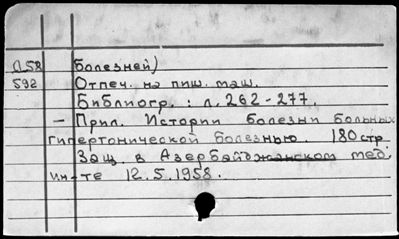 Д58 болезней)
592 Отпеч. на пиш. маш.
Библиогр. : л. 262-277.
- Прил. Истории болезни больных
гипертонической болезнью. 180 стр.
Защ. в Азербайджанском мед.
ин-те 12.5.1958.